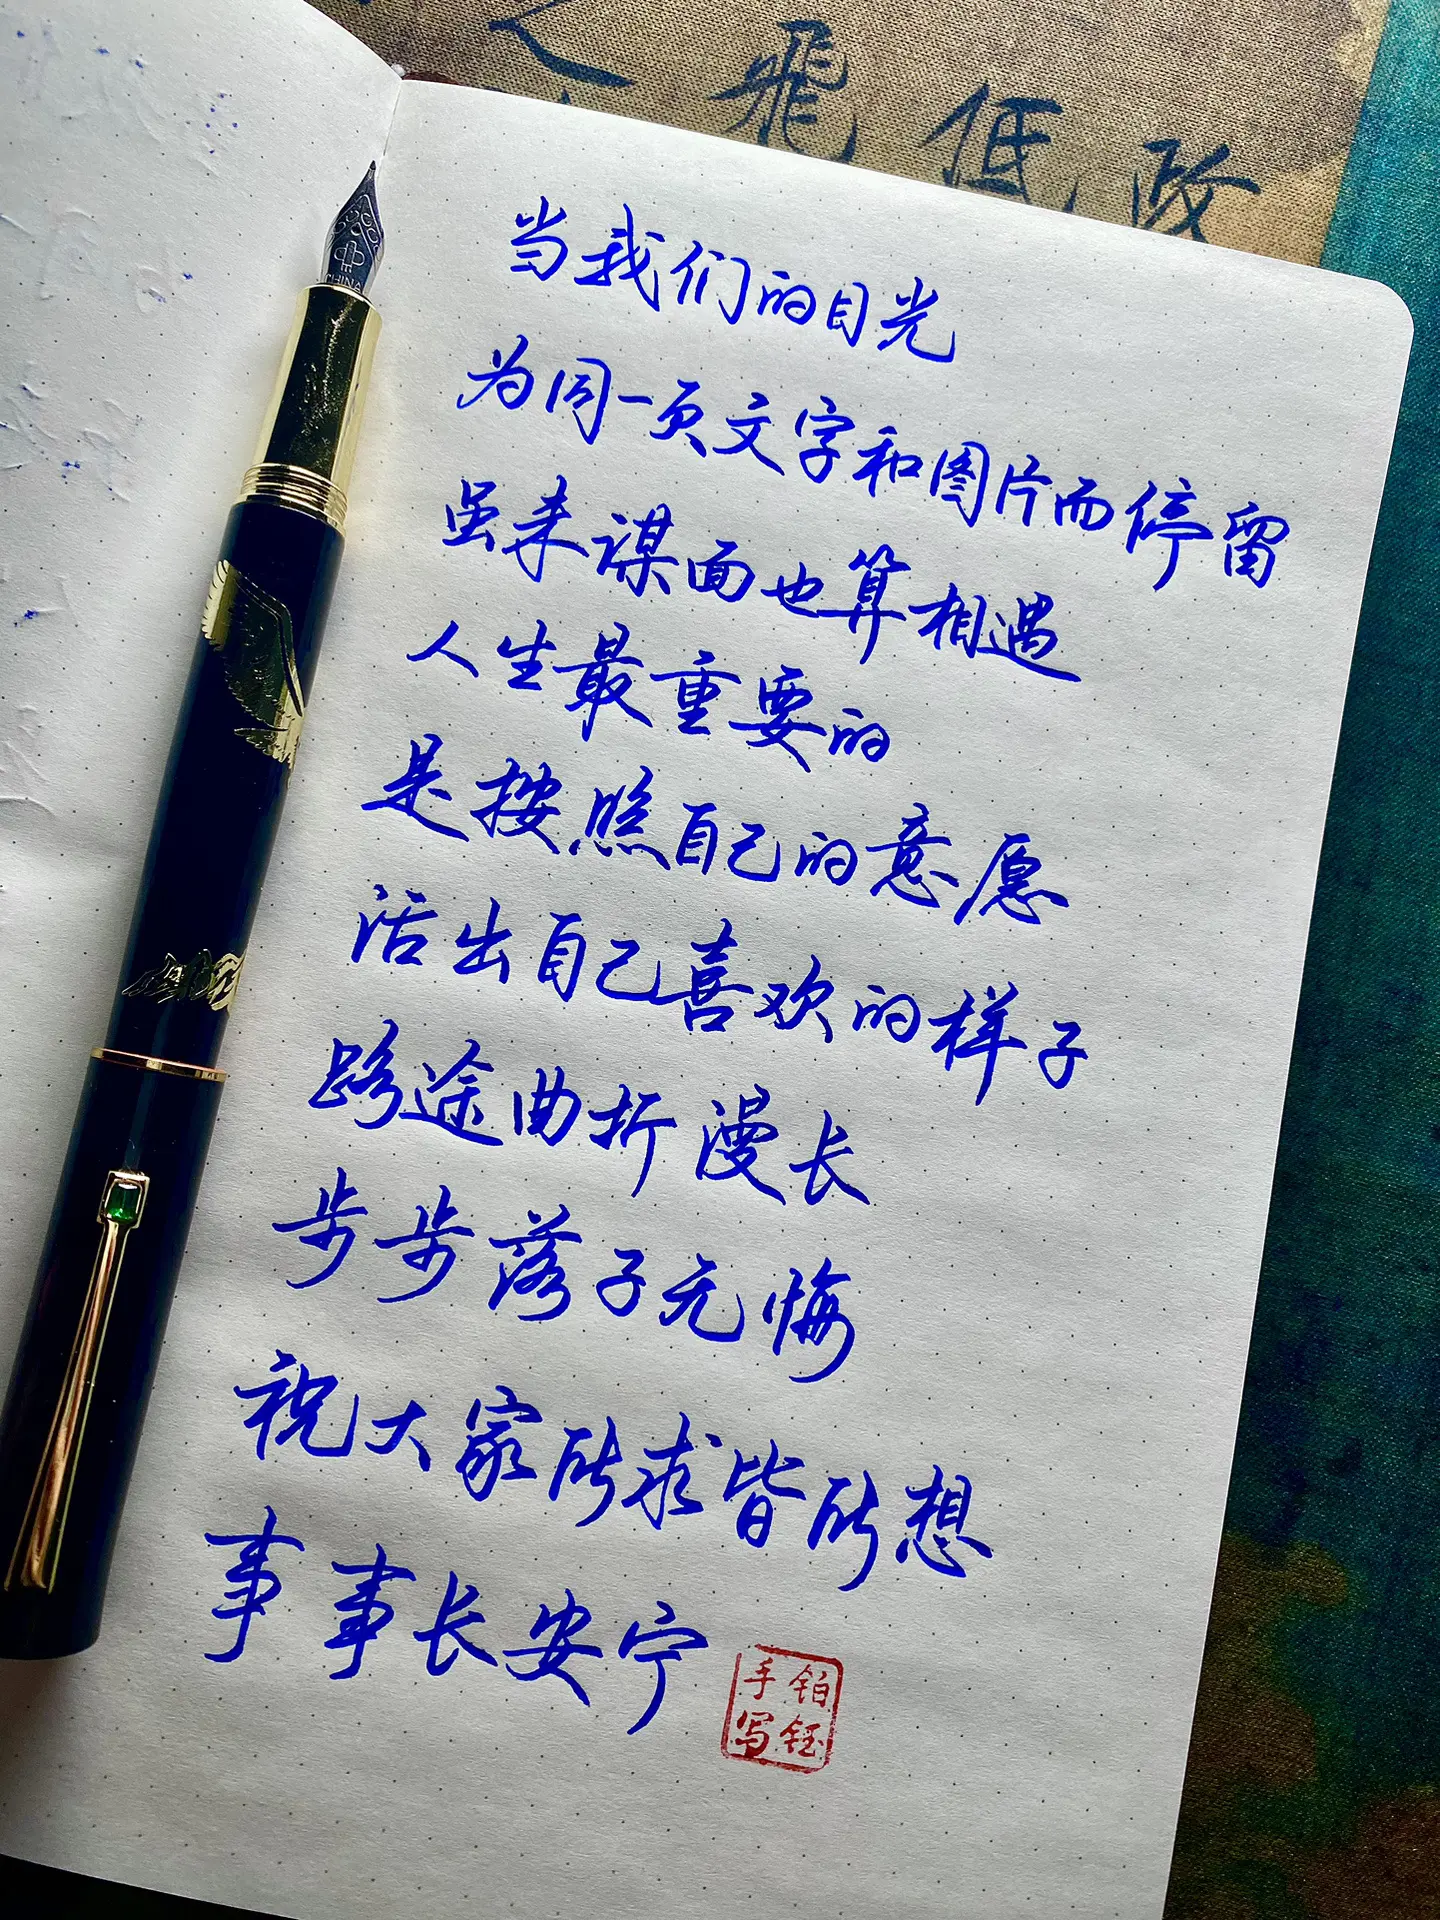 飛低故
当我们的目光
为同一页文字和图片而停留
虽未谋面也算相遇
人生最重要的
是按照自己的意愿
活出自己喜欢的样子
路途曲折漫长
步步落子无悔
祝大家所求皆所想
事事长安宁
铂钰
手写
CHINA